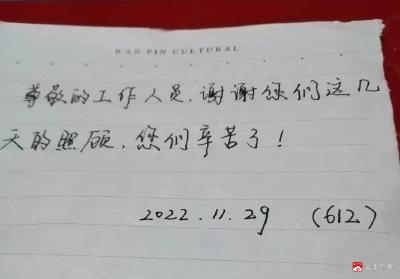 WAN PIN CULTURAL
尊敬的工作人员，谢谢您们这几
天的照顾，您们辛苦了！
2022.11.29 （612）